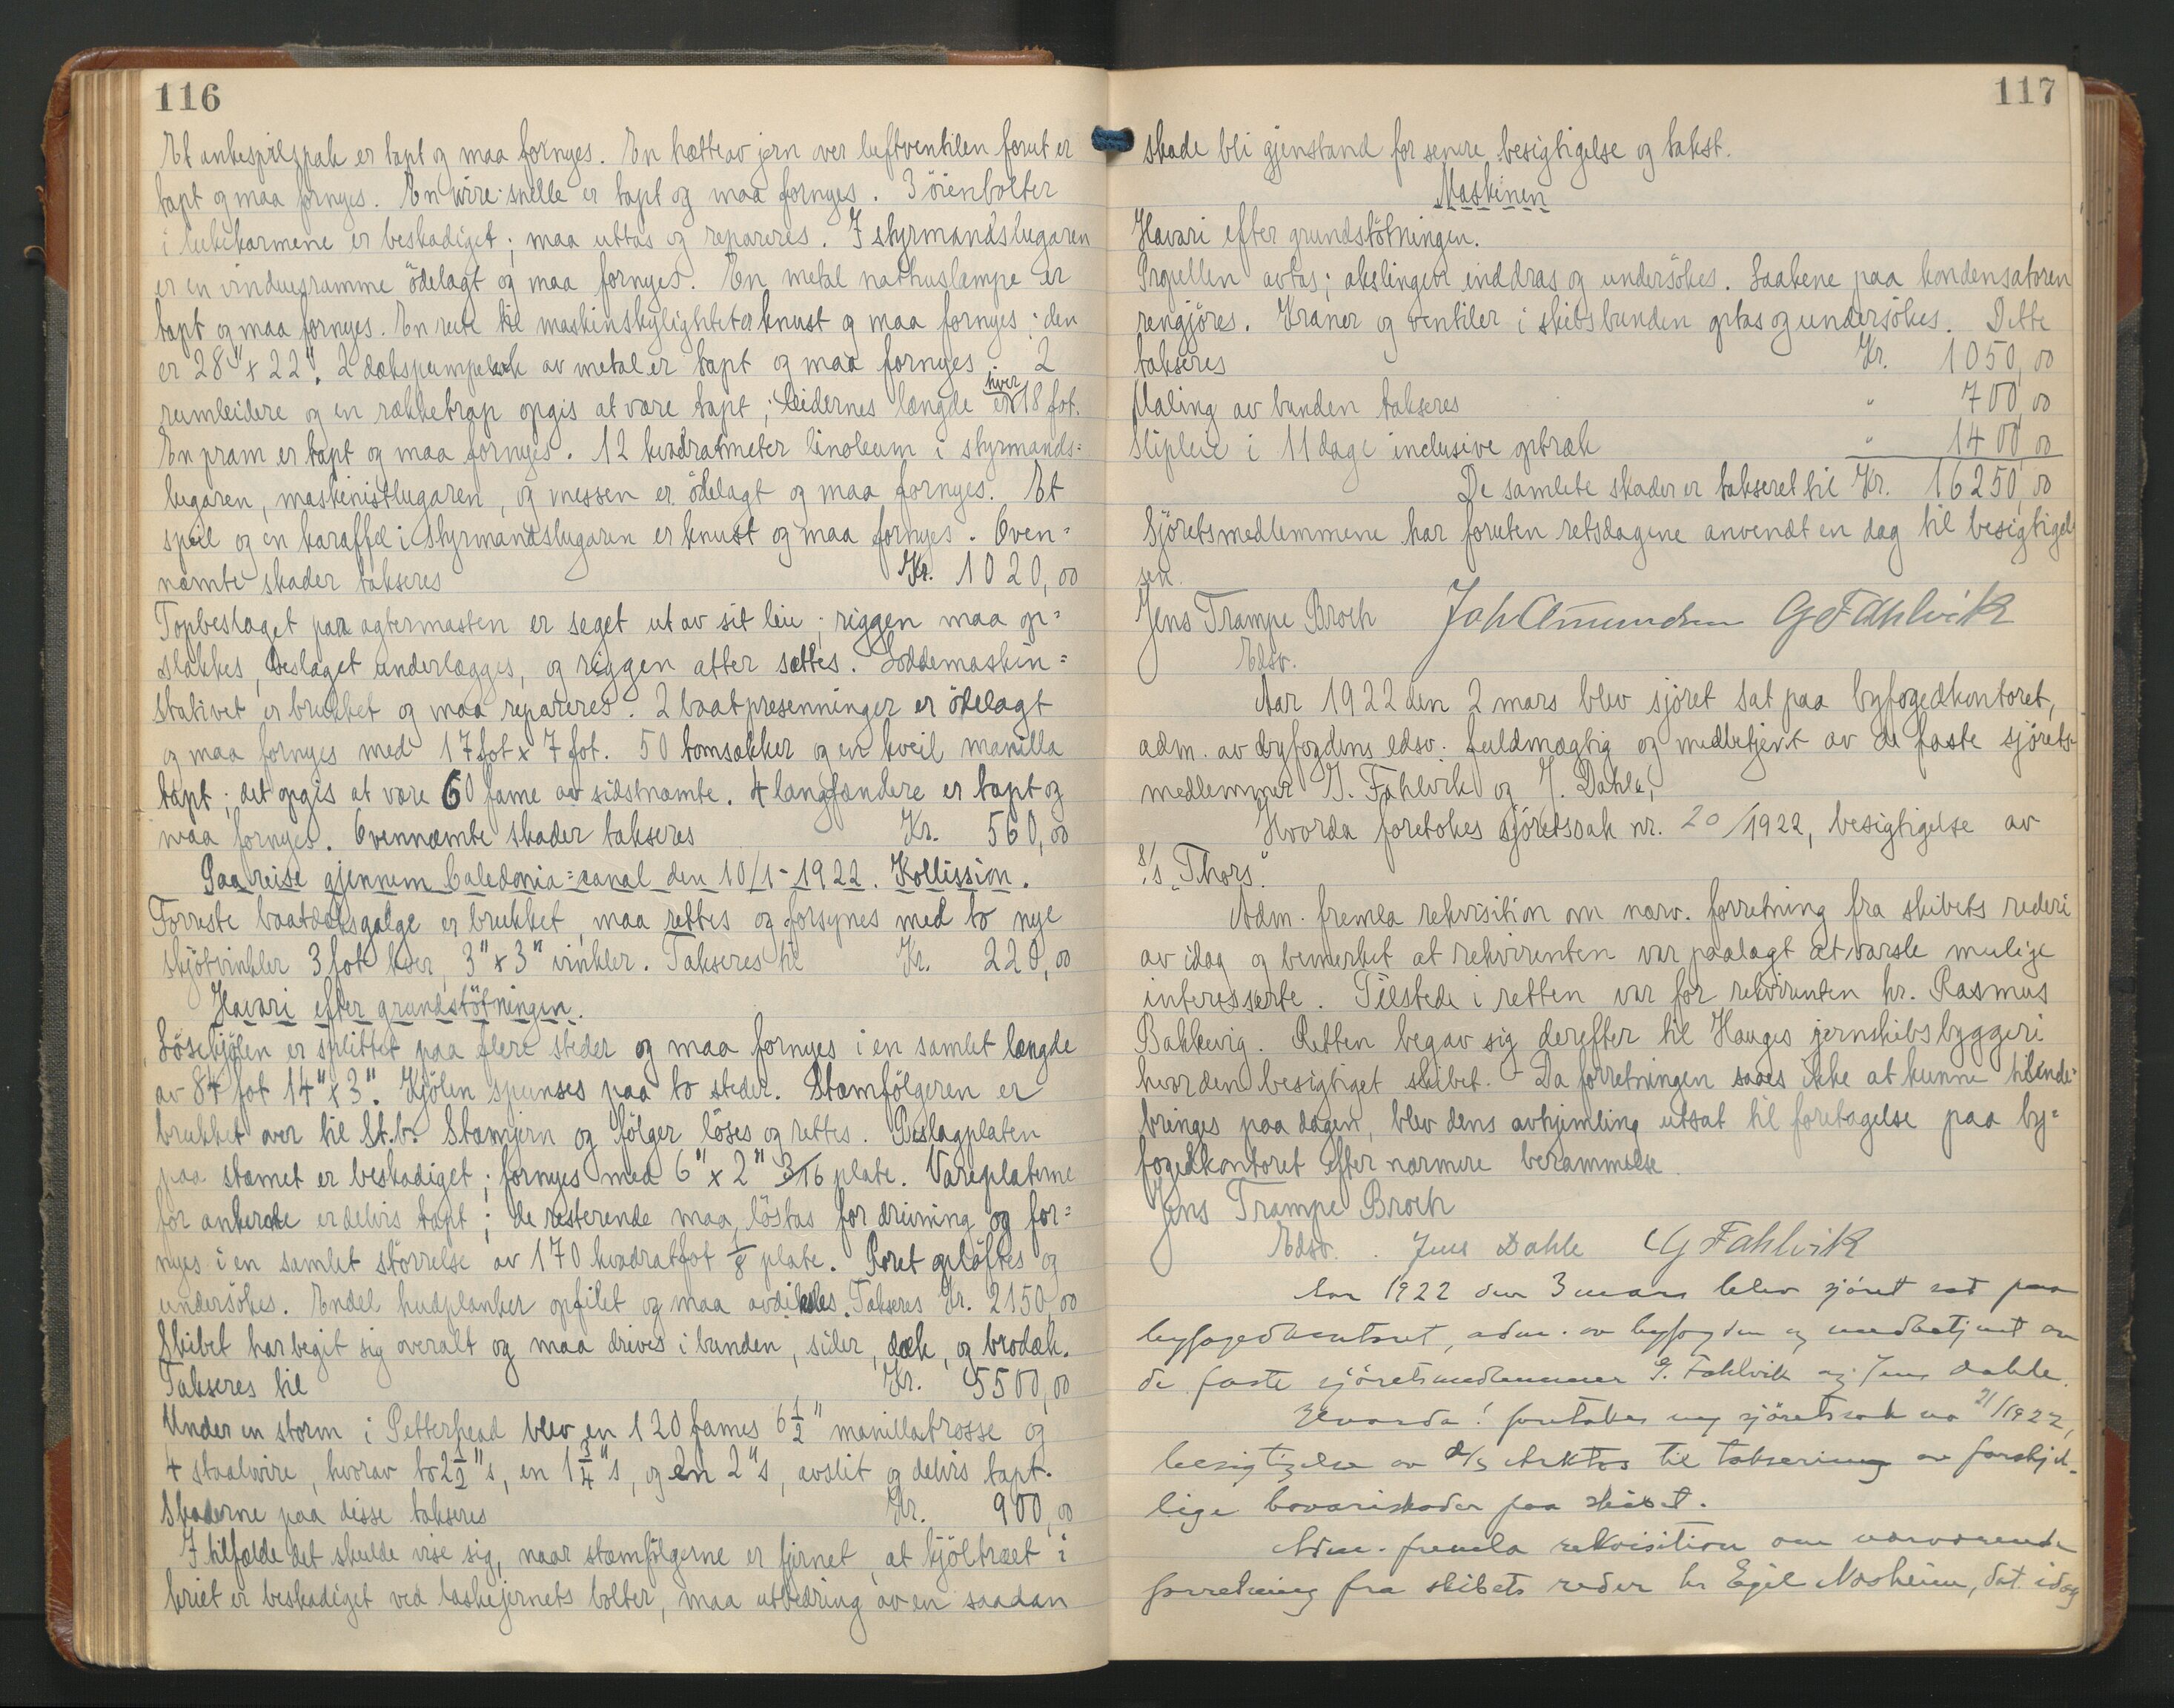 116
Et ankespilspak er tapt og maa fornyes. En hætte av jern over luftventilen forut er
tapt og maa fornyes. En wire-snelle er tapt og maa fornyes. 3 öienbolter
i lukekarmene er beskadiget; maa uttas og repareres. I styrmandslugaren
er en vinduesramme ödelagt og maa fornyes. En metal nathuslampe er
tapt og maa fornyes. En rute til maskinskylightet er knust og maa fornyes; den
er 28" x 22". 2 dækspumpelok av metal er tapt og maa fornyes. 2
rumleidere og en rækketrap opgis at være tapt; leidernes længde er hver 18 fot.
En pram er tapt og maa fornyes. 12 kvadratmeter linoleum i styrmands=
lugaren, maskinistlugaren, og messen er ödelagt og maa fornyes. Et
speil og en karaffel i styrmandslugaren er knust og maa fornyes. Oven=
næmte skader takseres Kr. 1020,00
Topbeslaget paa agtermasten er seget ut av sit leie; riggen maa op=
slakkes, beslaget underlægges, og riggen atter sættes. Loddemaskin=
stativet er brukket og maa repareres. 2 baatpresenninger er ödelagt
og maa fornyes med 17 fot x 7 fot. 50 tomsækker og en kveil manilla
tapt; det opgis at være 60 favne av sidstnæmte. 4 langfendere er tapt og
maa fornyes. Ovennæmte skader takseres Kr. 560,00
Paa reise gjennem Caledonia=canal den 10/1-1922. Kollission.
Forreste baatdæksgalge er brukket, maa rettes og forsynes med to nye
skjötvinkler 3 fot hver, 3" x 3" vinkler. Takseres til Kr. 220,00
Havari efter grundstötningen.
Lösekjölen er splittet paa flere steder og maa fornyes i en samlet længde
av 84 fot 14" x 3". Kjölen spunses paa to steder. Stæmfölgeren er
brukket over til St.b. Stæmjern og fölger löses og rettes. Beslagplaten
paa stæmet er beskadiget; fornyes med 6" x 2" 3/16 plate. Vareplaterne
for ankerne er delvis tapt; de resterende maa löstas for drivning og for=
nyes i en samlet störrelse av 170 kvadratfot 1/8 plate. Roret oplöftes og
undersökes. Endel hudplanker opfilet og maa avdiksles. Takseres Kr. 2150,00
Skibet har begit sig overalt og maa drives i bunden, sider, dæk, og brodæk.
Takseres til Kr. 5500,00
Under en storm i Petterhead blev en 120 favnes 6 1/2" manillatrosse og
4 staalwire, hvorav to 2 1/2"s, en 1 3/4"s, og en 2"s, avslit og delvis tapt.
Skaderne paa disse takseres Kr. 900,00
I tilfælde det skulde vise sig, naar stæmfölgerne er fjernet, at kjöltræet i
kriet er beskadiget ved laskejernets bolter, maa utbedring av en saadan
117
skade bli gjenstand for senere besigtigelse og takst.
Maskinen
Havari efter grundstötningen.
Propellen avtas; akslingen inddras og undersökes. Laakene paa kondensatoren
rengjöres. Kraner og ventiler i skibsbunden optas og undersökes. Dette
takseres Kr. 1050,00
Maling av bunden takseres " 700,00
Slipleie i 11 dage inclusive optræk " 1400,00
De samlete skader er takseret til Kr. 16250,00
Sjöretsmedlemmene har foruten retsdagene anvendt en dag til besigtigel
sen.
Jens Trampe Broch Joh Amundsen G Fahlvik
Edsv.
Aar 1922 den 2 mars blev sjöret sat paa byfogedkontoret,
adm. av byfogdens edsv. fuldmægtig og medbetjent av de faste sjörets-
medlemmer G. Fahlvik og J. Dahle;
Hvorda foretokes sjöretssak nr. 20/1922, besigtigelse av
s/s "Thors".
Adm. fremla rekvisition om nærv. forretning fra skibets rederi
av idag og bemerket at rekvirenten var paalagt at varsle mulige
interesserte. Tilstede i retten var for rekvirenten hr. Rasmus
Bakkevig. Retten begav sig derefter til Hauges jernskibsbyggeri
hvor den besigtiget skibet. - Da forretningen saaes ikke at kunne tilende=
bringes paa dagen, blev dens avhjemling utsat til foretagelse paa by=
fogedkontoret efter nærmere berammelse.
Jens Trampe Broch
Edsv. Jens Dahle G Fahlvik
Aar 1922 den 3 mars blev sjöret sat paa
byfogedkontoret, adm. av byfogden og medbetjent av
de faste sjöretsmedlemmer G. Fahlvik og Jens Dahle.
Hvorda! foretokes sjöretssak no 21/1922,
besigtigelse av d/s Arktos til taksering av forskjel-
lige havariskader paa skibet.
Adm. fremla rekvisition om nærværende
forretning fra skibets reder hr Egil Næsheim, dat. idag